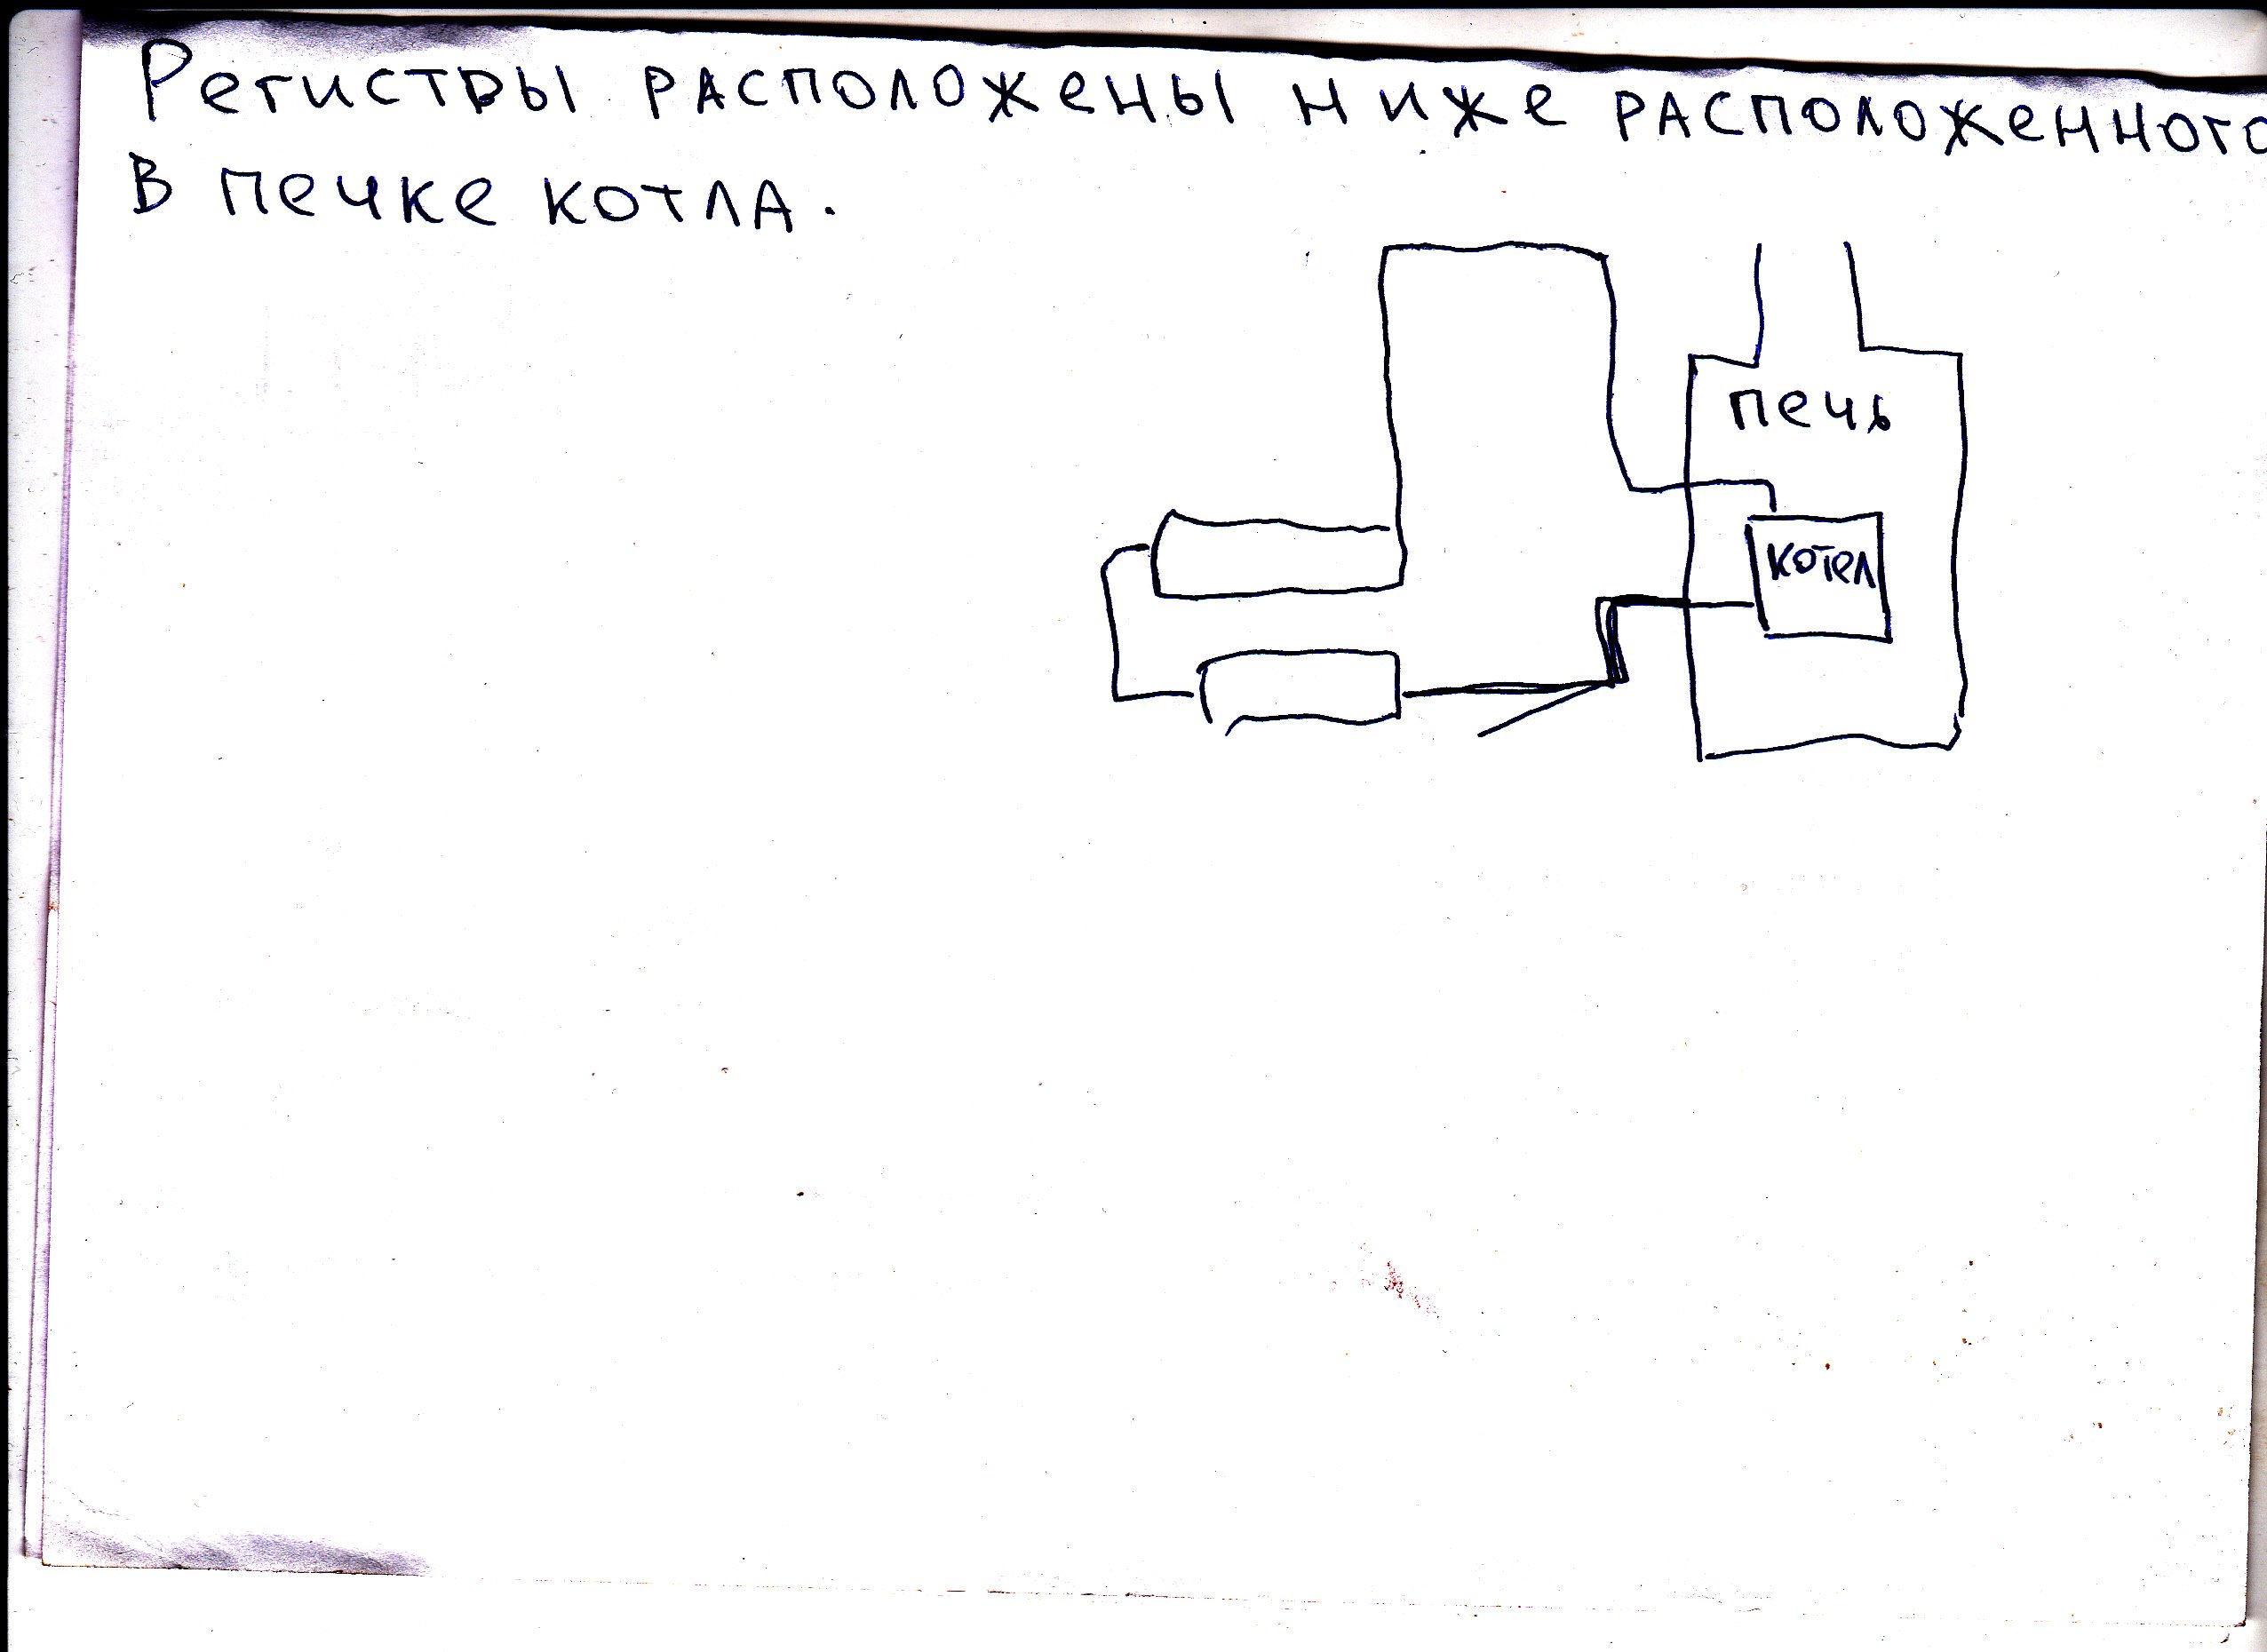 Регистры расположены ниже расположенного
в печке котла.
печь
котел